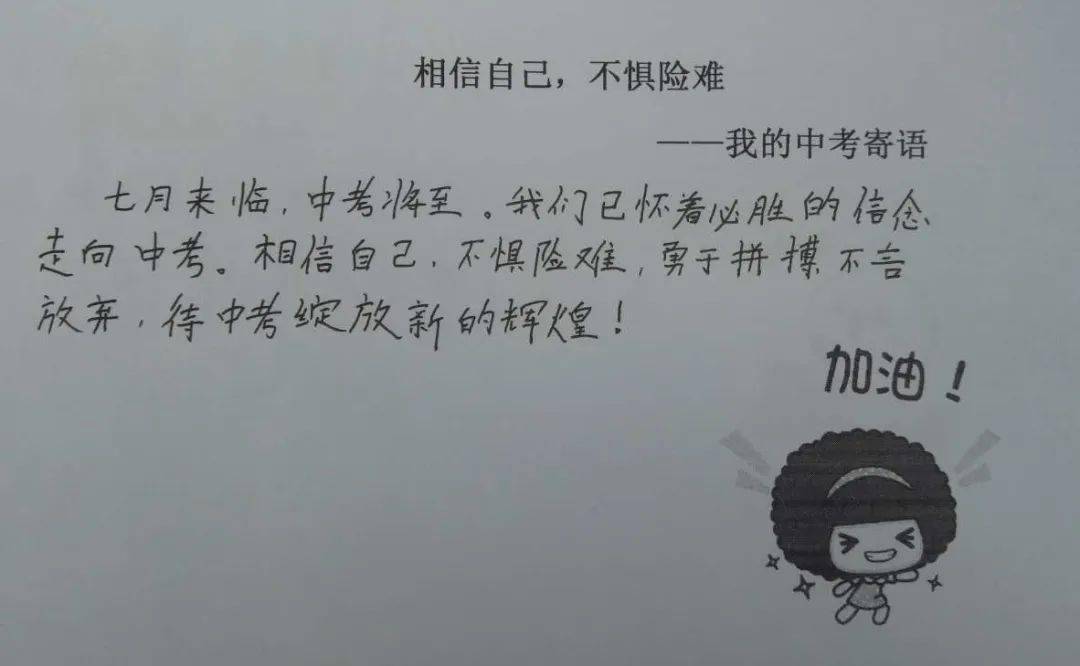 相信自己，不惧险难
——我的中考寄语
七月来临，中考将至。我们已怀着必胜的信念
走向中考。相信自己，不惧险难，勇于拼搏不言
放弃，待中考绽放新的辉煌！
加油！